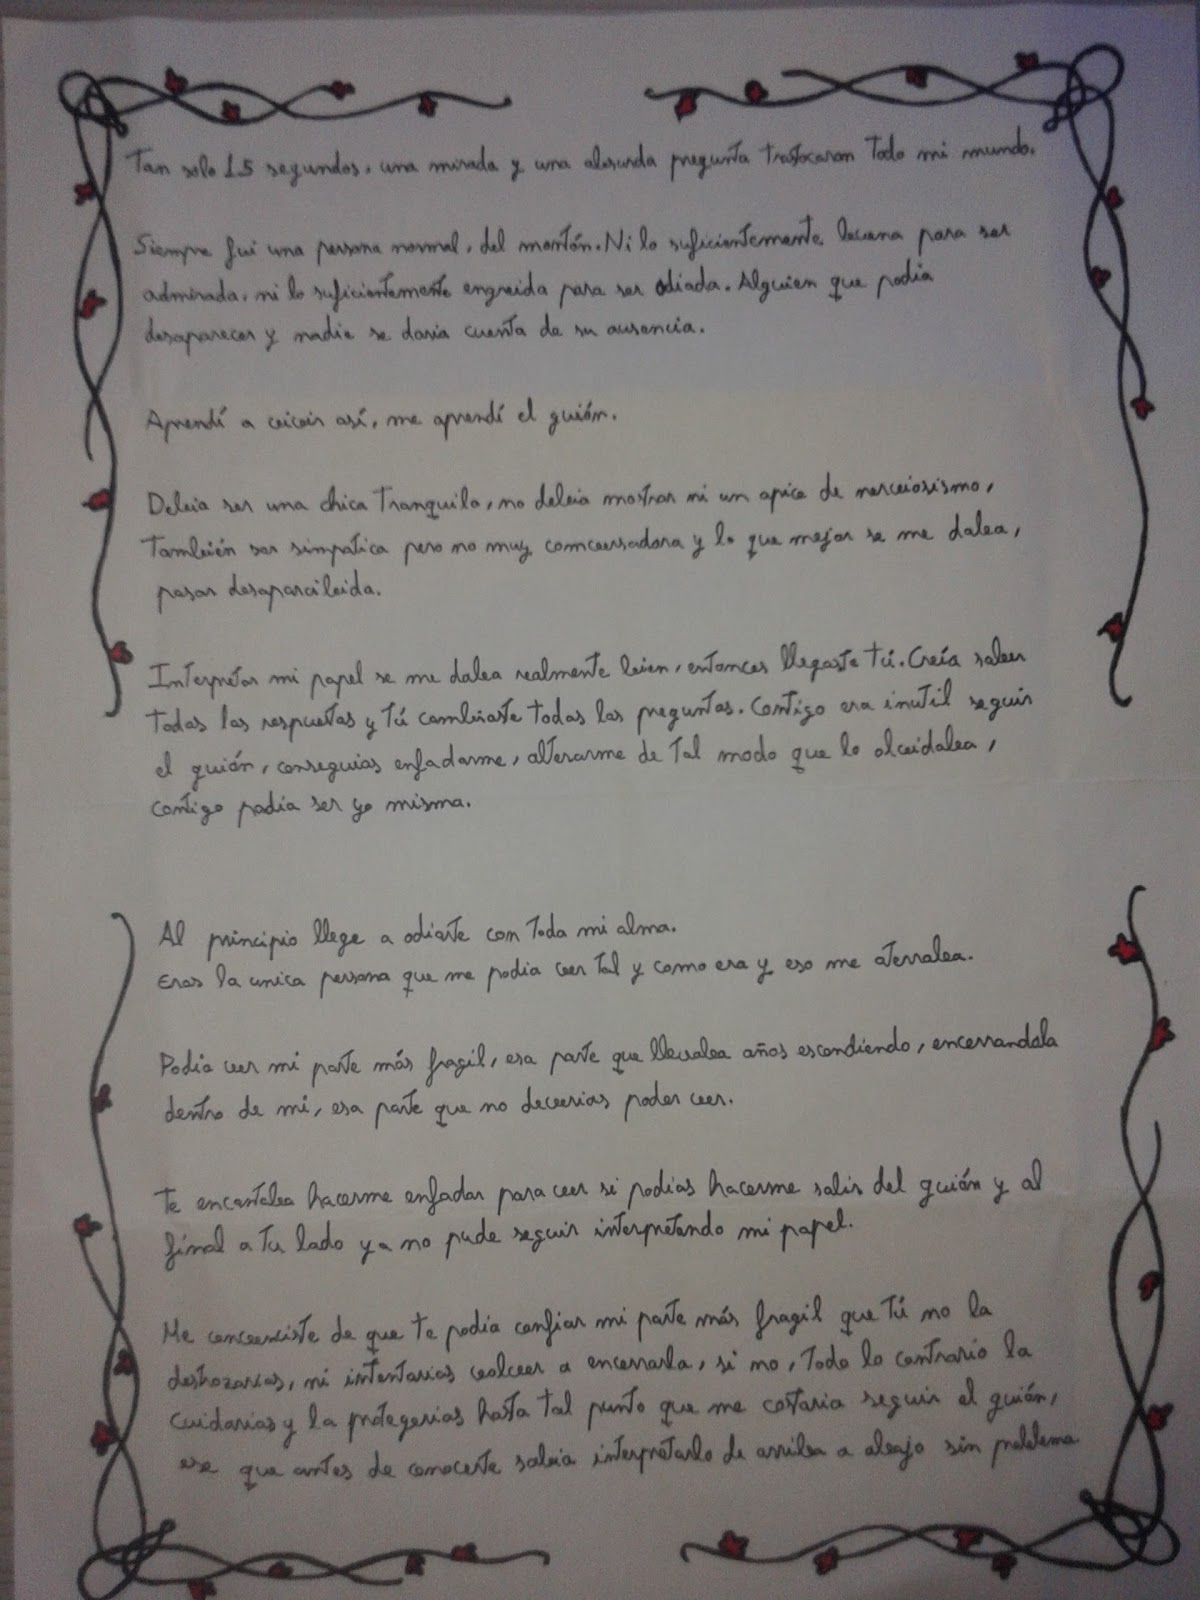 Tan solo 15 segundos, una mirada y una absurda pregunta trastocaron todo mi mundo.
Siempre fui una persona normal, del montón. Ni lo suficientemente buena para ser
admirada, ni lo suficientemente engreida para ser odiada. Alguien que podia
desaparecer y nadie se daria cuenta de su ausencia.
Aprendí a vivir así, me aprendí el guión.
Debia ser una chica tranquila, no debia mostrar ni un apice de nerviosismo,
también ser simpatica pero no muy conversadora y lo que mejor se me daba,
pasar desapercibida.
Interpretar mi papel se me daba realmente bien, entonces llegaste tú. Creía saber
todas las respuestas y tú cambiaste todas las preguntas. Contigo era inutil seguir
el guión, conseguias enfadarme, alterarme de tal modo que lo olvidaba,
contigo podia ser yo misma.
Al principio llege a odiarte con toda mi alma.
Eras la unica persona que me podia ver tal y como era y eso me aterraba.
Podia ver mi parte más fragil, esa parte que llevaba años escondiendo, encerrandola
dentro de mi, esa parte que no deverias poder ver.
Te encantaba hacerme enfadar para ver si podias hacerme salir del guión y al
final a tu lado ya no pude seguir interpretando mi papel.
Me convenciste de que te podia confiar mi parte más fragil que tú no la
deshozarias, ni intentarias volver a encerrarla, si no, todo lo contrario la
cuidarias y la protegerias hasta tal punto que me costaria seguir el guión,
ese que antes de conocerte sabia interpretarlo de arriba a abajo sin problema